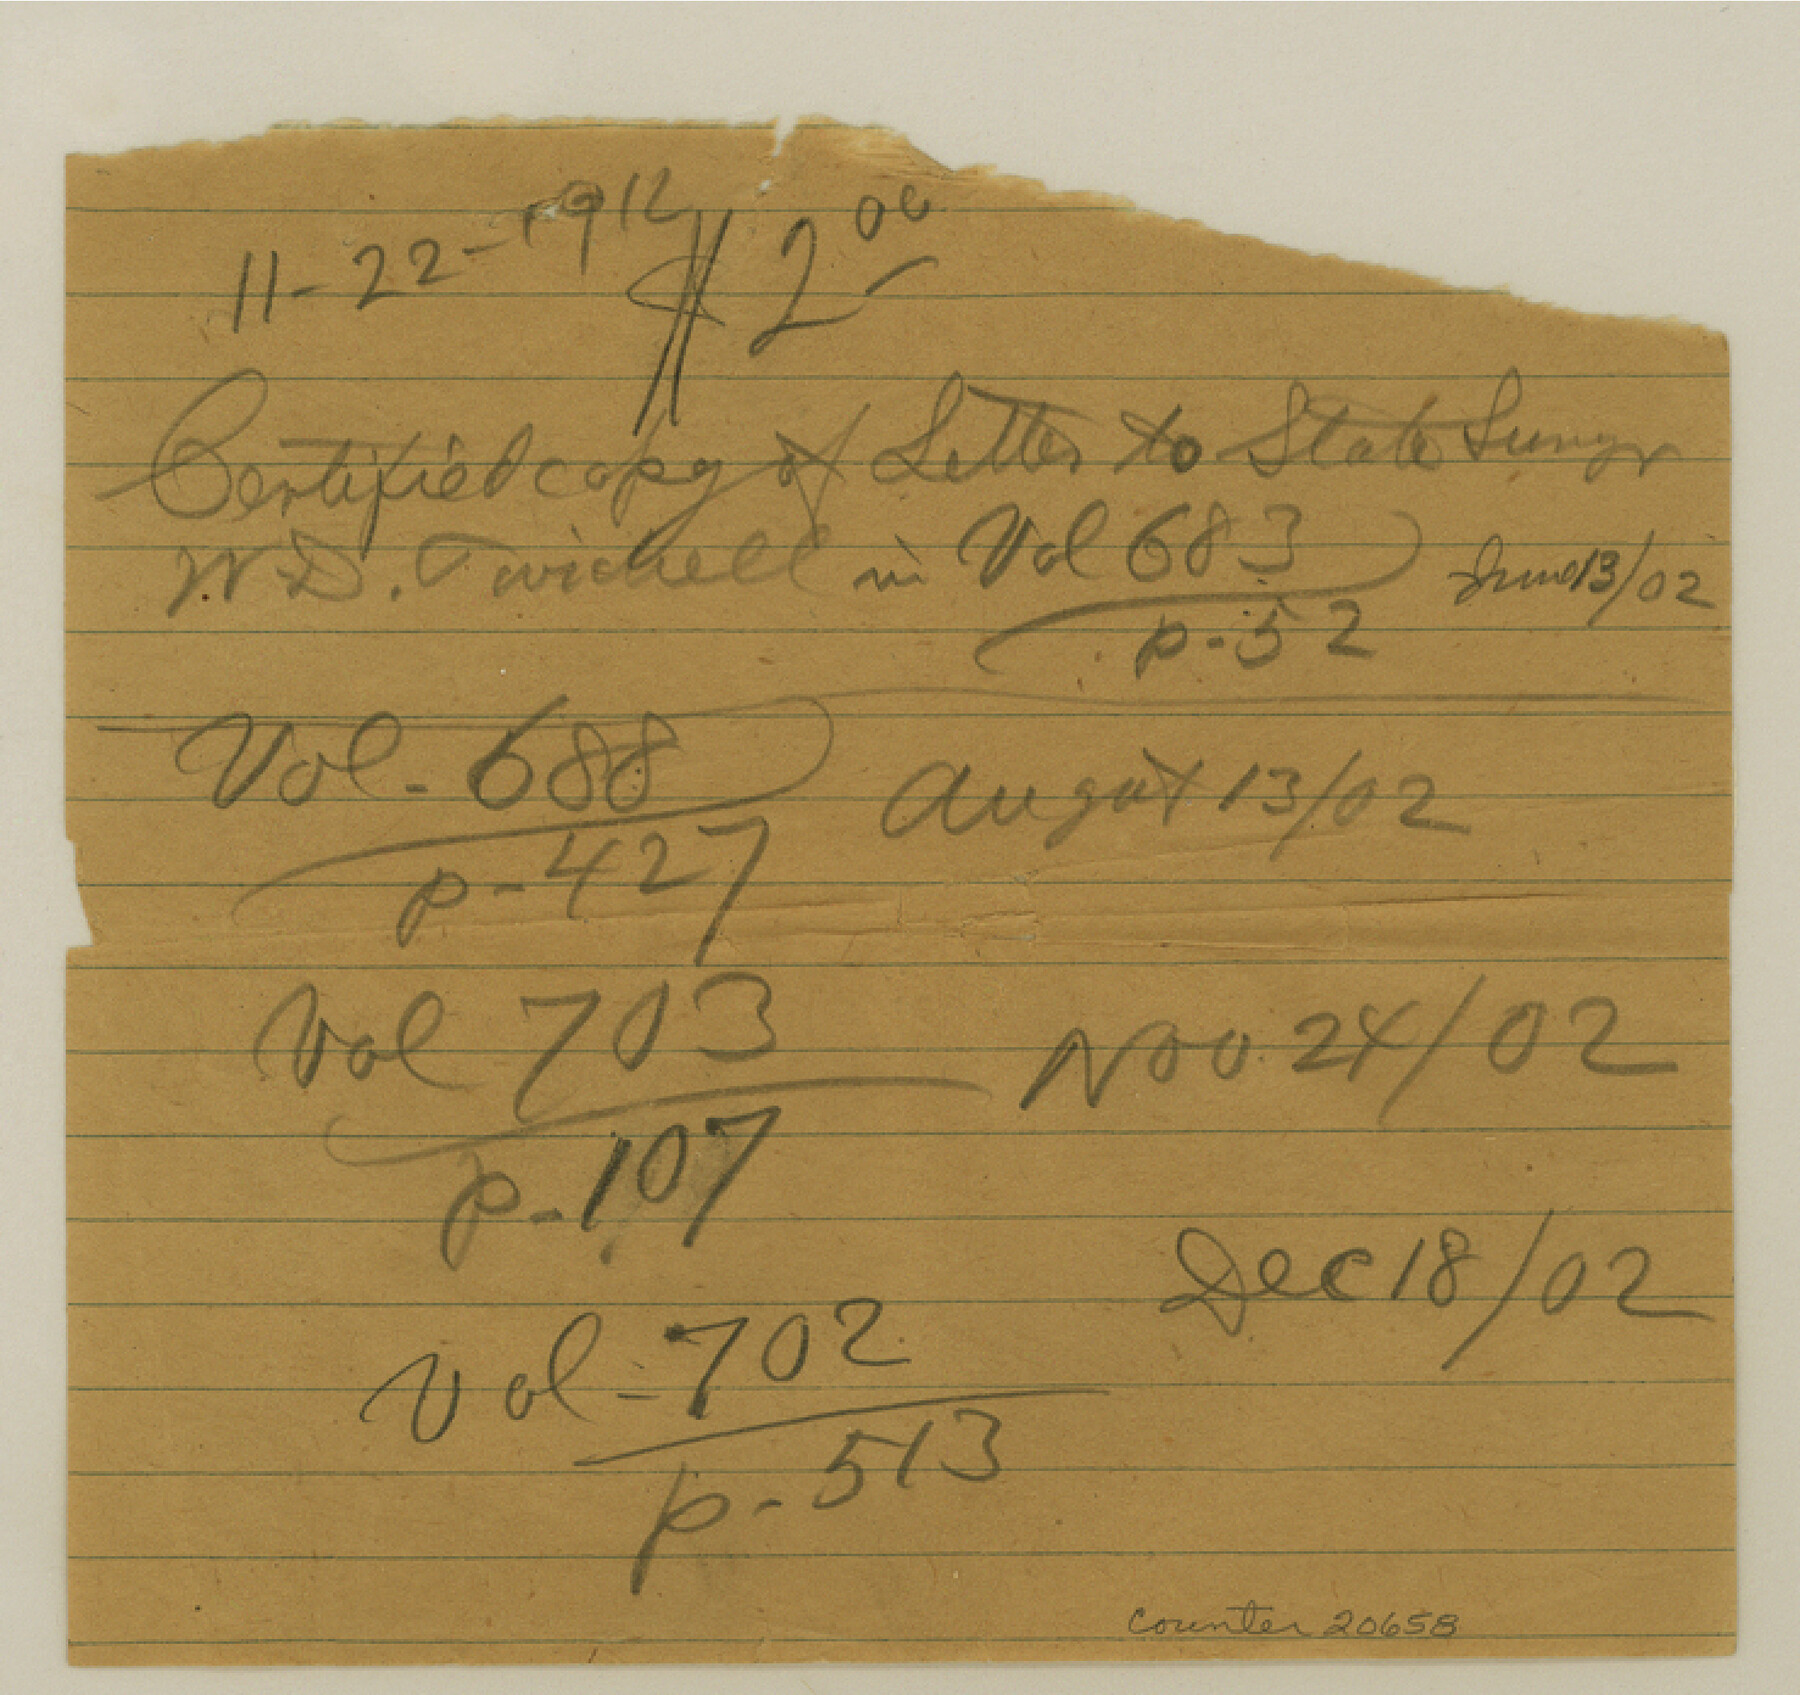 11-22-1912 $2 00
Certified copy of Letter to State Survyr
W.D. Twichell in Vol 683 June 13/02
p-52
Vol-688 August 13/02
p-427
Vol 703 Nov. 24/02
p-107
Dec 18/02
Vol-702
p-513
counter 20658